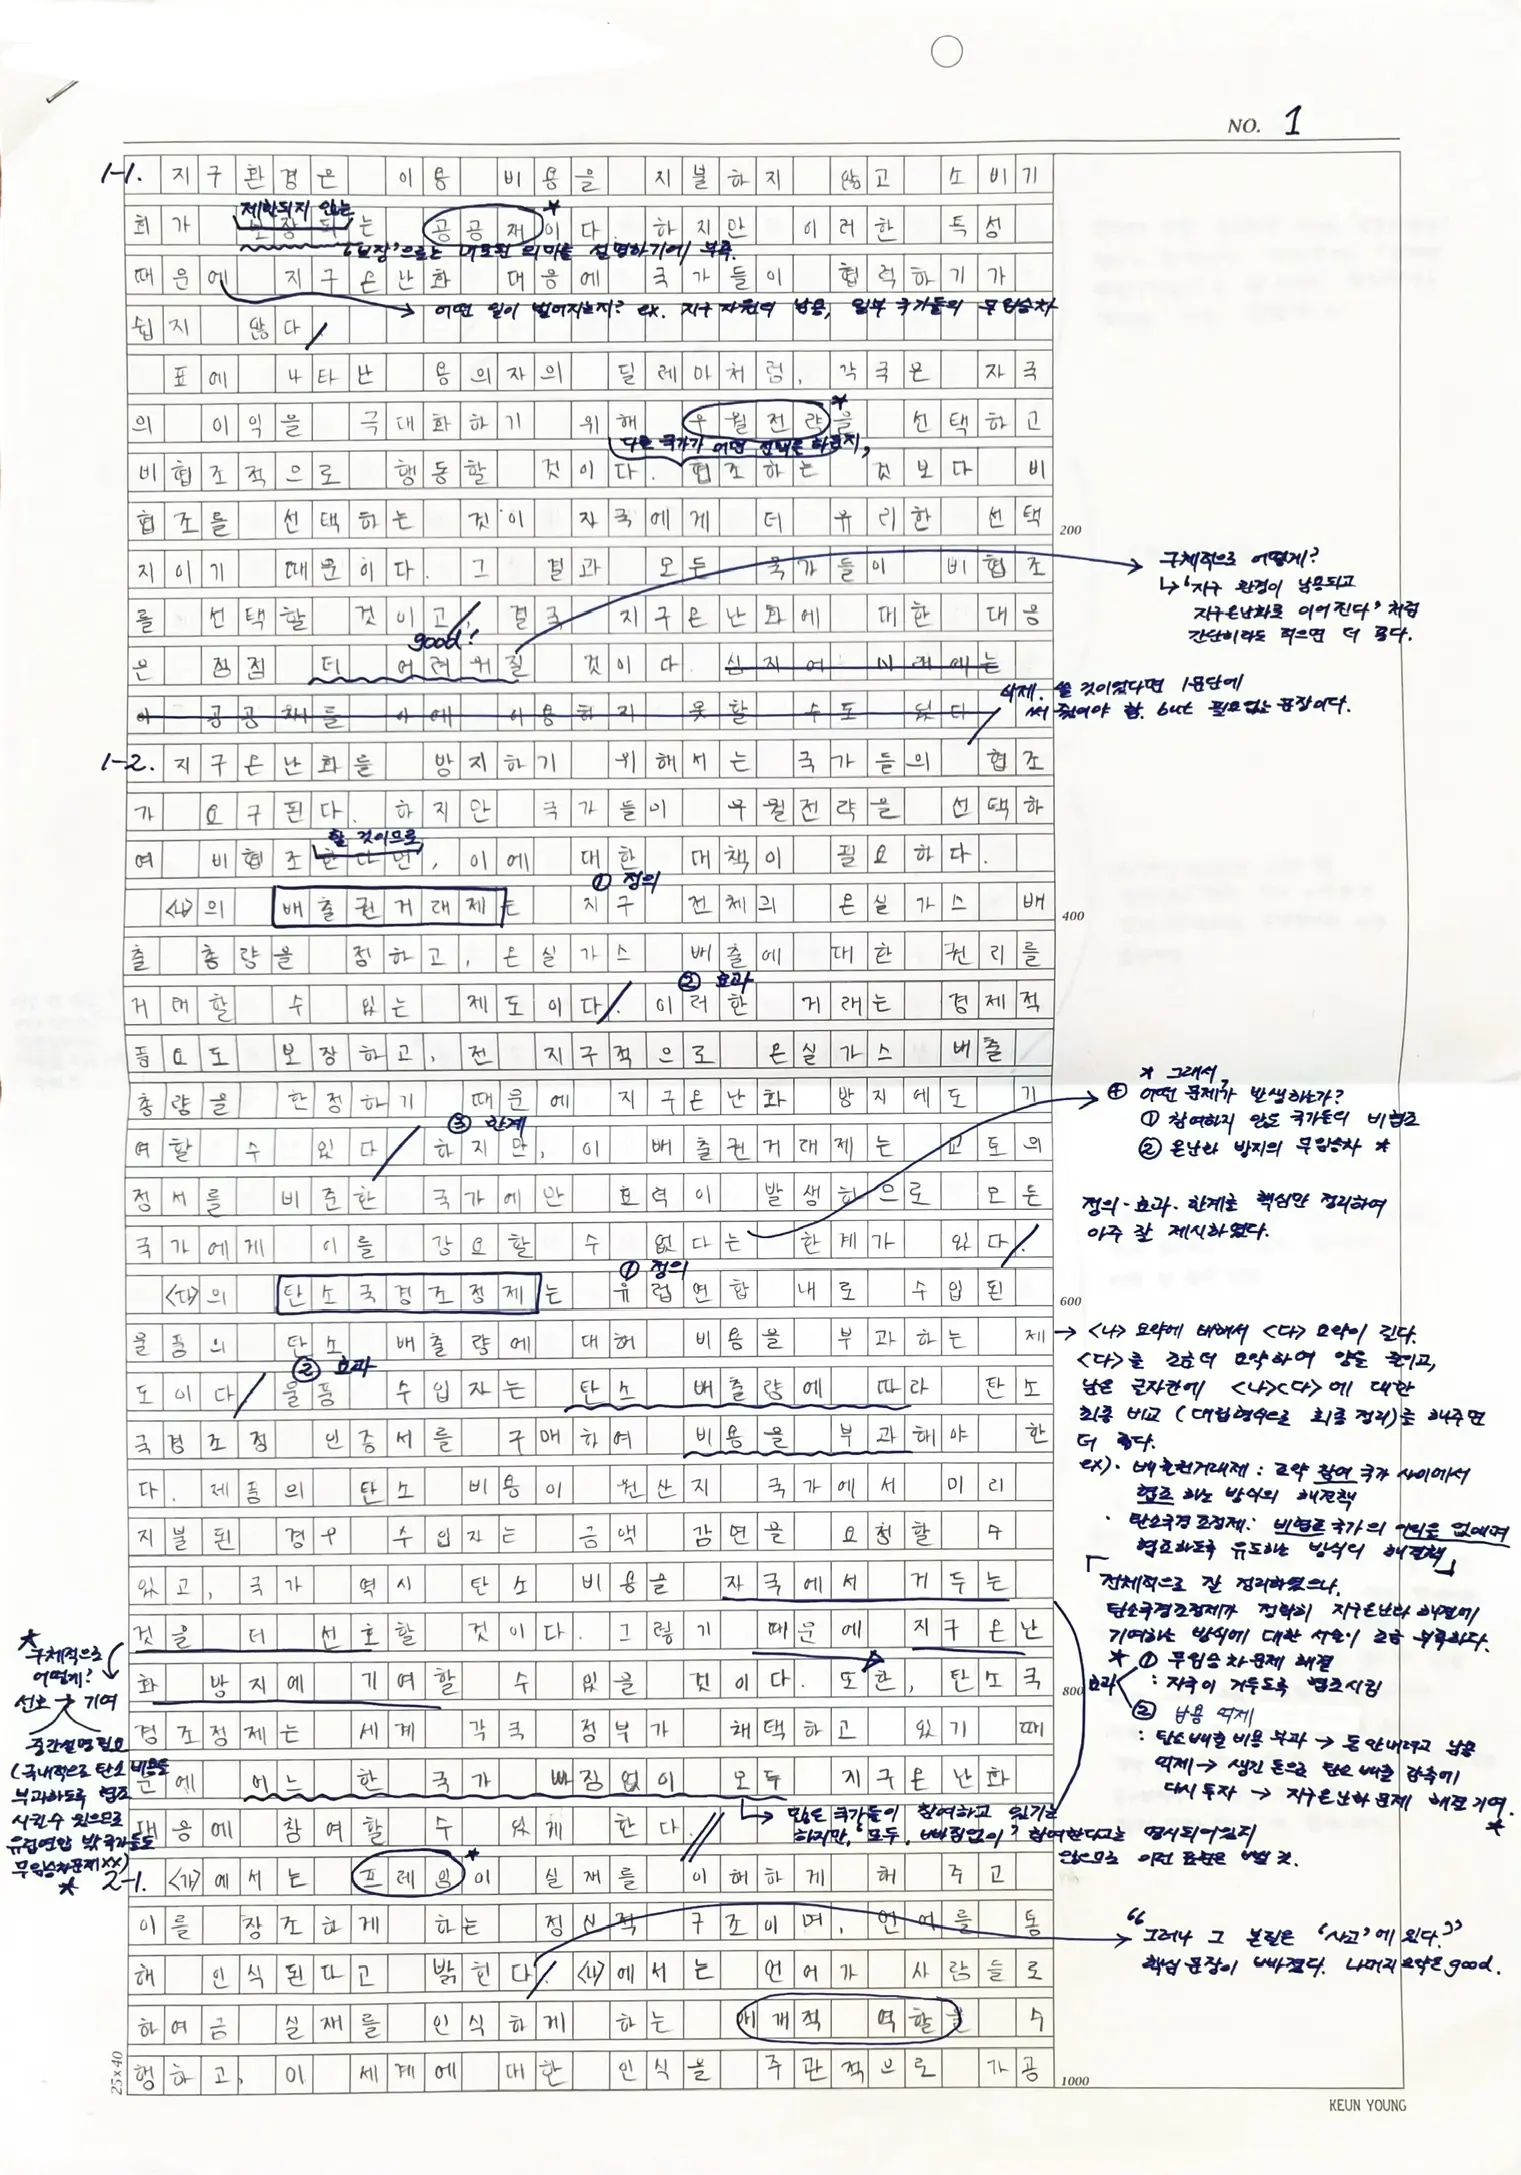 NO. 1
1-1. 지구환경은 이용 비용을 지불하지 않고 소비기
제한되지 않는
회가 보장되는 공공재이다. 하지만 이러한 특성
'보장'으로는 의미를 설명하기에 부족.
때문에 지구온난화 대응에 국가들이 협력하기가
어떤 일이 벌어지는지? ex. 지구 자원의 남용, 일부 국가들의 무임승차
쉽지 않다.
표에 나타난 용의자의 딜레마처럼, 각국은 자국
의 이익을 극대화하기 위해 우월전략을 선택하고
다른 국가가 어떤 선택을 하든지,
비협조적으로 행동할 것이다. 협조하는 것보다 비
협조를 선택하는 것이 자국에게 더 유리한 선택
200
지이기 때문이다. 그 결과 모든 국가들이 비협조
구체적으로 어떻게?
↳ '지구 환경이 남용되고
지구온난화로 이어진다' 처럼
간단히라도 적으면 더 좋다.
를 선택할 것이고, 결국 지구온난화에 대한 대응
good!
은 점점 더 어려워질 것이다. 심지어 미래에는
이 공공재를 아예 이용하지 못할 수도 있다
삭제. 쓸 것이었다면 1문단에
써 줬어야 함. but 필요없는 문장이다.
1-2. 지구온난화를 방지하기 위해서는 국가들의 협조
가 요구된다. 하지만 국가들이 우월전략을 선택하
할 것이므로
여 비협조한다면, 이에 대한 대책이 필요하다.
① 정의
<나>의 배출권거래제는 지구 전체의 온실가스 배
400
출 총량을 정하고, 온실가스 배출에 대한 권리를
② 효과
거래할 수 있는 제도이다. 이러한 거래는 경제적
풍요도 보장하고, 전 지구적으로 온실가스 배출
총량을 한정하기 때문에 지구온난화 방지에도 기
③ 한계
여할 수 있다. 하지만, 이 배출권거래제는 교토의
정서를 비준한 국가에만 효력이 발생하므로 모든
국가에게 이를 강요할 수 없다는 한계가 있다.
* 그래서,
⊕ 어떤 문제가 발생하는가?
① 참여하지 않는 국가들의 비협조
② 온난화 방지의 무임승차 *
정의·효과·한계로 핵심만 정리하여
아주 잘 제시하였다.
① 정의
<다>의 탄소국경조정제는 유럽연합 내로 수입된
600
물품의 탄소 배출량에 대해 비용을 부과하는 제
② 효과
도이다. 물품 수입자는 탄소 배출량에 따라 탄소
국경조정 인증서를 구매하여 비용을 부과해야 한
다. 제품의 탄소 비용이 원산지 국가에서 미리
지불된 경우 수입자는 금액 감면을 요청할 수
있고, 국가 역시 탄소 비용을 자국에서 거두는
→ <나> 요약에 비해서 <다> 요약이 길다.
<다>를 조금 더 요약하여 양을 줄이고,
남은 글자칸에 <나><다>에 대한
최종 비교 (대립형식으로 최종 정리)를 해주면
더 좋다.
ex). 배출권거래제 : 조약 참여 국가 사이에서
협조하는 방식의 해결책
· 탄소국경조정제: 비협조 국가의 이익을 없애며
협조하도록 유도하는 방식의 해결책
전체적으로 잘 정리하였으나,
탄소국경조정제가 정확히 지구온난화 해결에
기여하는 방식에 대한 서술이 조금 부족하다.
것을 더 선호할 것이다. 그렇기 때문에 지구온난
화 방지에 기여할 수 있을 것이다. 또한, 탄소국
800
효과
* ① 무임승차문제 해결
: 자국이 거두도록 협조시킴
② 남용 억제
: 탄소배출 비용 부과 → 돈 안내려고 남용
억제 → 생긴 돈으로 탄소 배출 감축에
다시 투자 → 지구온난화 문제 해결 기여.
*
* 구체적으로
어떻게?
선호 → 기여
중간설명필요
(국내적으로 탄소 비용을
부과하도록 협조
시킬수 있으므로
유럽연합 밖 국가들도
무임승차문제 XX)
*
경조정제는 세계 각국 정부가 채택하고 있기 때
문에 어느 한 국가 빠짐없이 모두 지구온난화
대응에 참여할 수 있게 한다.
→ 많은 국가들이 참여하고 있기는
하지만, '모두, 빠짐없이' 참여한다고는 명시되어있지
않으므로 이런 표현은 뺄 것.
2-1. <가>에서는 프레임이 실재를 이해하게 해 주고
이를 창조하게 하는 정신적 구조이며, 언어를 통
해 인식된다고 밝힌다. <나>에서는 언어가 사람들로
"그러나 그 본질은 '사고'에 있다."
핵심 문장이 빠졌다. 나머지 요약은 good.
하여금 실재를 인식하게 하는 매개적 역할을 수
행하고, 이 세계에 대한 인식을 주관적으로 가공
1000
25×40
KEUN YOUNG